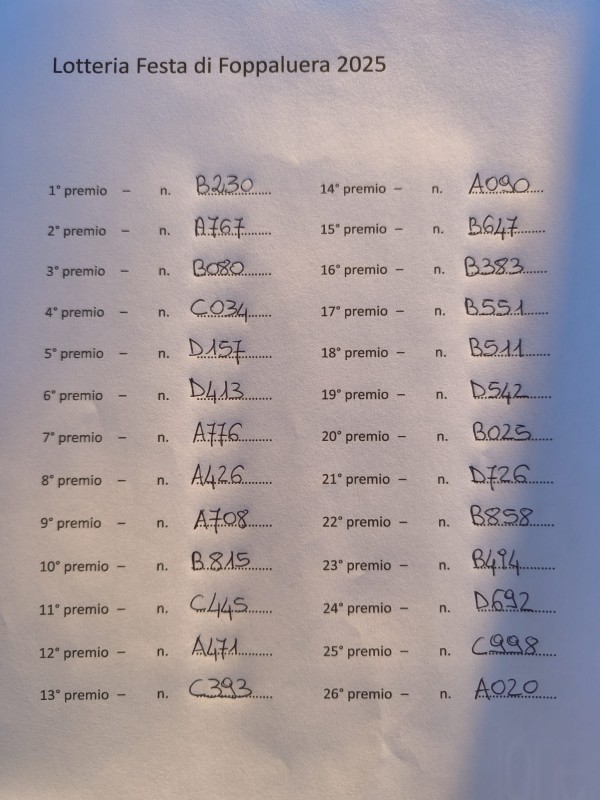 Lotteria Festa di Foppaluera 2025
1° premio – n. B230
2° premio – n. A767
3° premio – n. B080
4° premio – n. C034
5° premio – n. D157
6° premio – n. D413
7° premio – n. A776
8° premio – n. A426
9° premio – n. A708
10° premio – n. B815
11° premio – n. C445
12° premio – n. A471
13° premio – n. C393
14° premio – n. A090
15° premio – n. B647
16° premio – n. B383
17° premio – n. B551
18° premio – n. B511
19° premio – n. D542
20° premio – n. B025
21° premio – n. D726
22° premio – n. B858
23° premio – n.
24° premio – n. D692
25° premio – n. C998
26° premio – n. A020